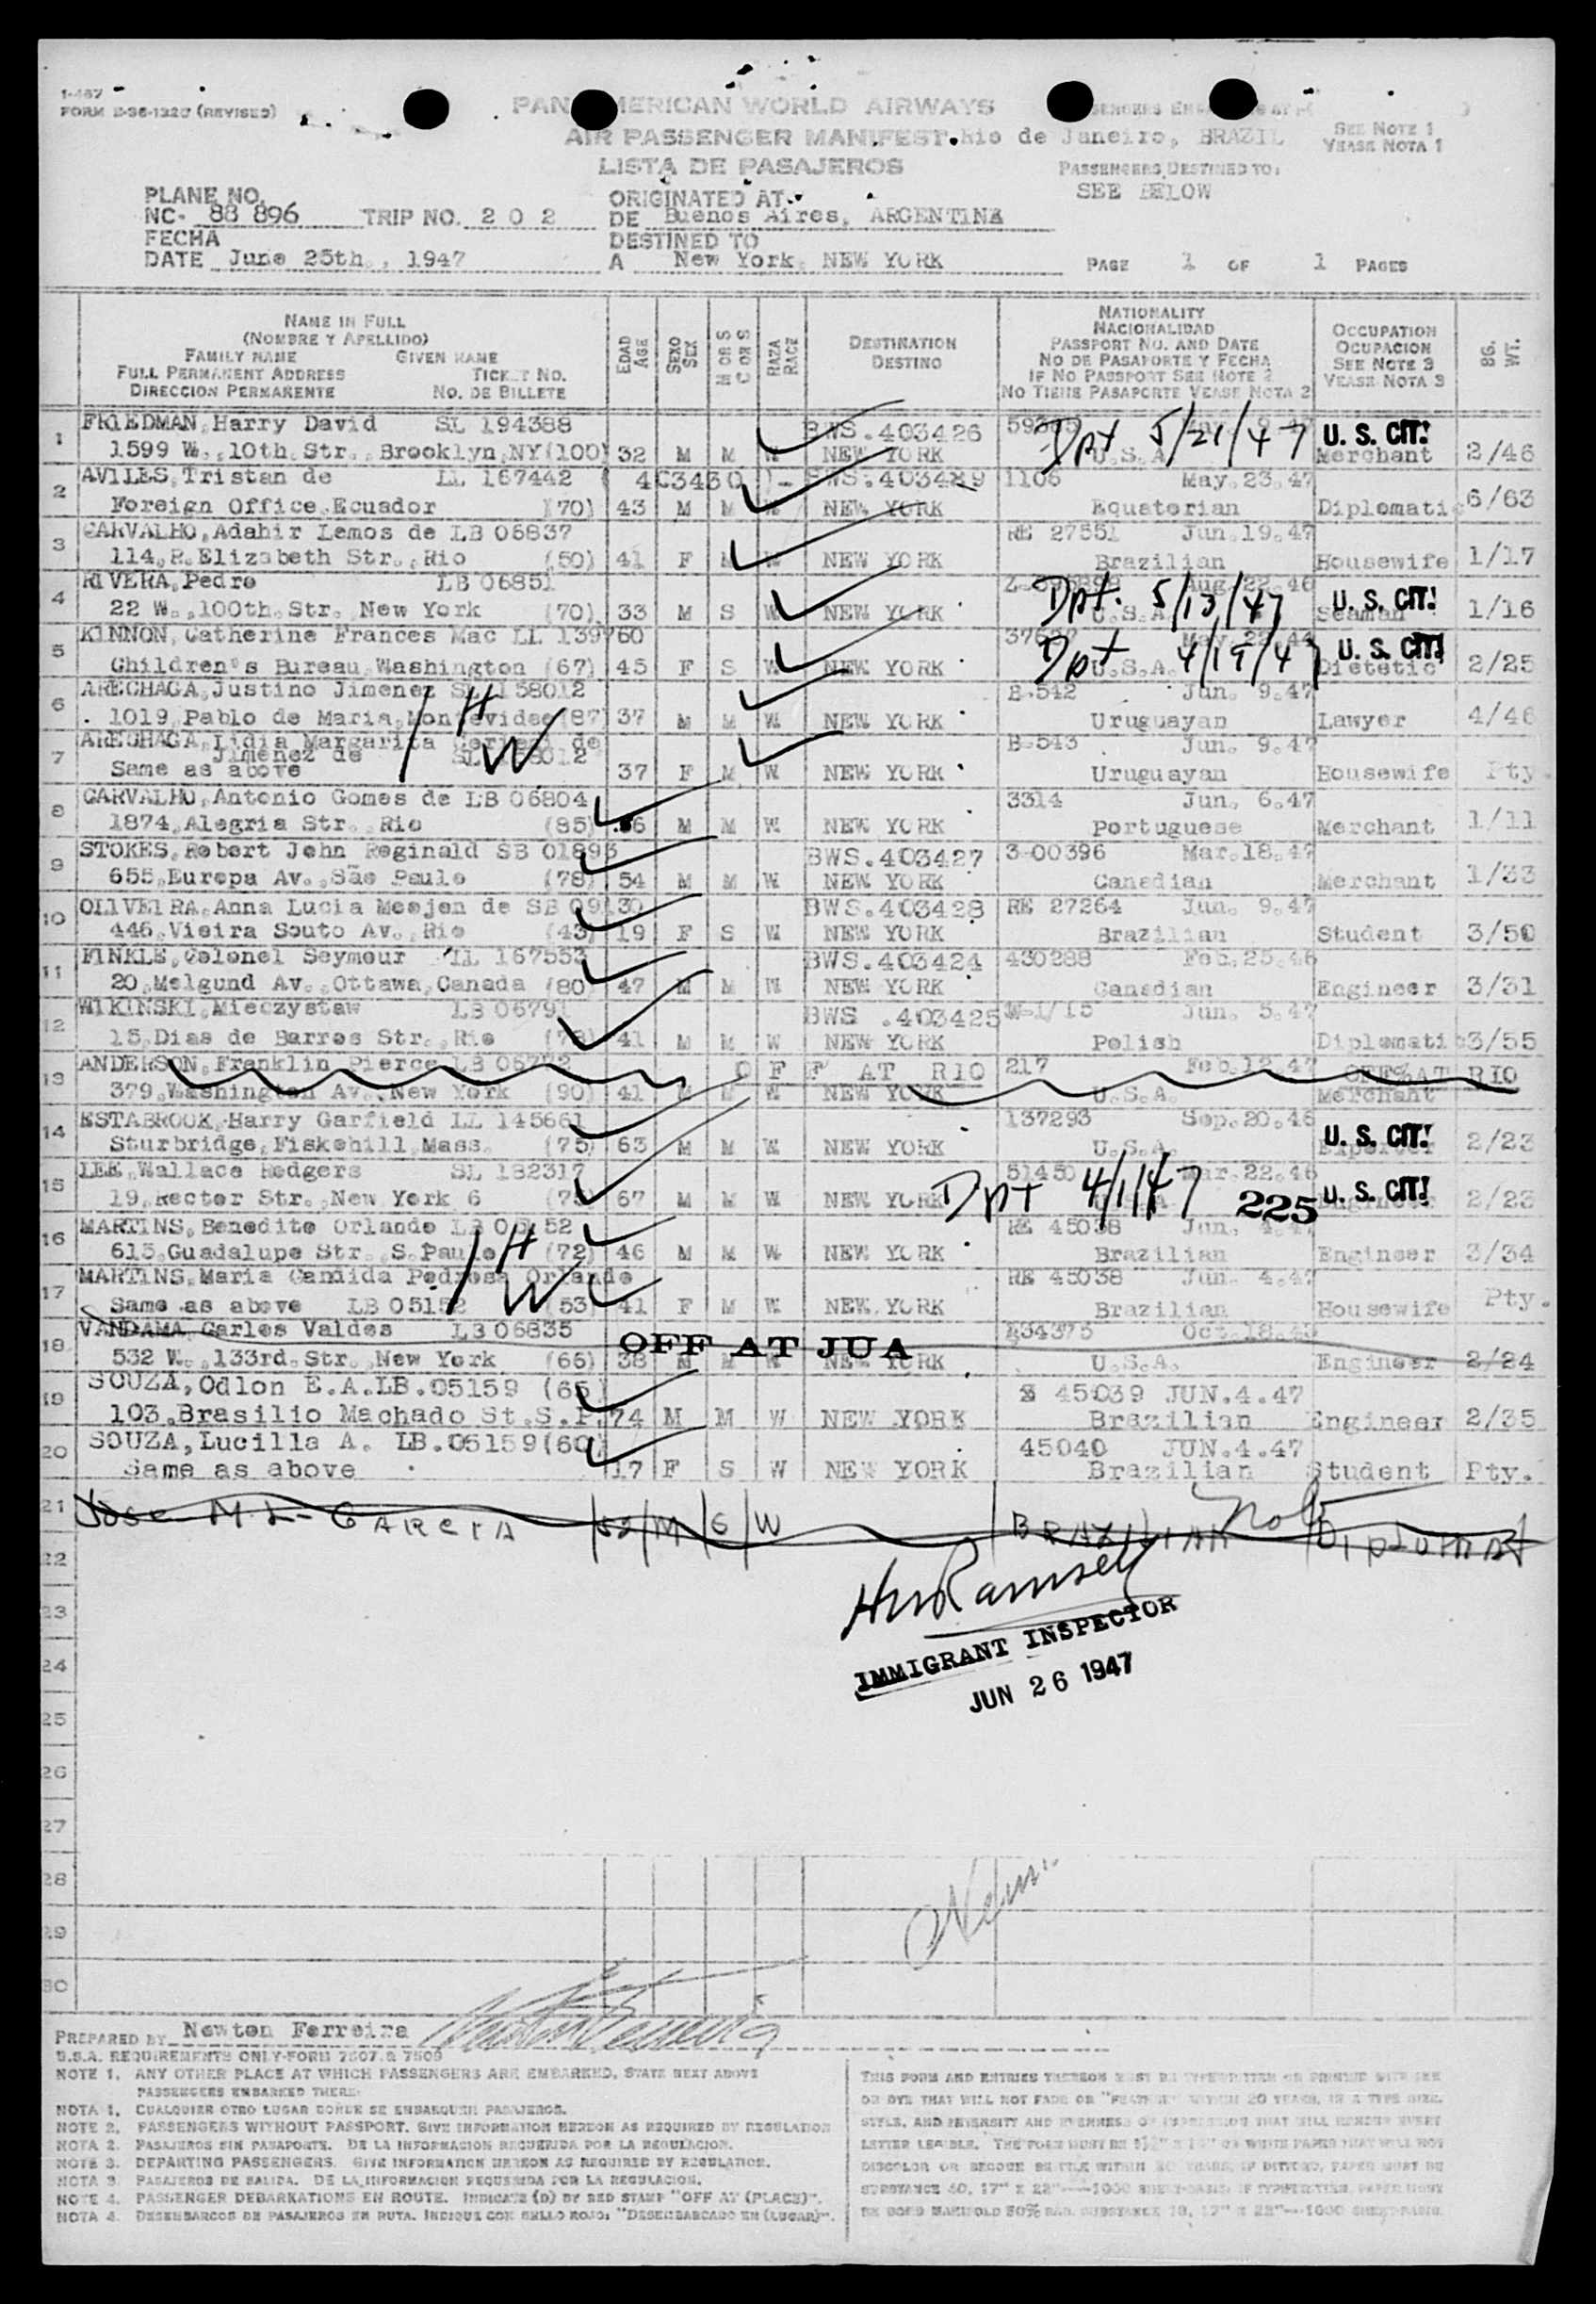 1-467
FORM D-36-1320 (REVISED)
PAN AMERICAN WORLD AIRWAYS
AIR PASSENGER MANIFEST. Rio de Janeiro, BRAZIL
SEE NOTE 1
VEASE NOTA 1
LISTA DE PASAJEROS
PASSENGERS DESTINED TO:
SEE BELOW
PLANE NO.
NC- 88 896 TRIP NO. 2 0 2
ORIGINATED AT
DE Buenos Aires, ARGENTINA
FECHA
DATE June 25th., 1947
DESTINED TO
A New York, NEW YORK
PAGE 1 OF 1 PAGES
NAME IN FULL
(NOMBRE Y APELLIDO)
FAMILY NAME GIVEN NAME
FULL PERMANENT ADDRESS TICKET NO.
DIRECCION PERMANENTE NO. DE BILLETE
EDAD
AGE
SEXO
SEX
M OR S
C OR S
RAZA
RACE
DESTINATION
DESTINO
NATIONALITY
NACIONALIDAD
PASSPORT NO. AND DATE
NO DE PASAPORTE Y FECHA
IF NO PASSPORT SEE NOTE 2
NO TIENE PASAPORTE VEASE NOTA 2
OCCUPATION
OCUPACION
SEE NOTE 3
VEASE NOTA 3
BG.
WT.
1 FRIEDMAN, Harry David SL 194388 BWS.403426 Dpt 5/21/47 U. S. CIT.
1599 W., 10th. Str., Brooklyn, NY (100) 32 M M W NEW YORK U.S.A. Merchant 2/46
2 AVILES, Tristan de LL 167442 ( 403430 )- BWS.403489 1106 May.23.47
Foreign Office, Ecuador (70) 43 M M W NEW YORK Equatorian Diplomatic 6/63
3 CARVALHO, Adahir Lemos de LB 06837 RE 27551 Jun.19.47
114, R. Elizabeth Str., Rio (50) 41 F M W NEW YORK Brazilian Housewife 1/17
4 RIVERA, Pedro LB 06851 Aug.22.46 Dpt. 5/13/47 U. S. CIT.
22 W., 100th. Str. New York (70) 33 M S W NEW YORK U.S.A. Seaman 1/16
5 KINNON, Catherine Frances Mac LL 139760 Dpt 4/19/47 U. S. CIT.
Children's Bureau, Washington (67) 45 F S W NEW YORK U.S.A. Dietetic 2/25
6 ARECHAGA, Justino Jimenez SL 158012 B.542 Jun. 9.47
1019, Pablo de Maria, Montevideo (87) 37 M M W NEW YORK Uruguayan Lawyer 4/46
H
W
7 ARECHAGA, Lidia Margarita Ferrero de B-543 Jun. 9.47
Jimenez de SL 158012
Same as above 37 F M W NEW YORK Uruguayan Housewife Pty.
8 CARVALHO, Antonio Gomes de LB 06804 3314 Jun. 6.47
1874, Alegria Str., Rio (85) 6 M M W NEW YORK Portuguese Merchant 1/11
9 STOKES, Robert John Reginald SB 01893 BWS.403427 3-00396 Mar.18.47
655, Europa Av., São Paulo (78) 54 M M W NEW YORK Canadian Merchant 1/33
10 OLIVEIRA, Anna Lucia Meojen de SB 09130 BWS.403428 RE 27264 Jun. 9.47
446, Vieira Souto Av., Rio (43) 19 F S W NEW YORK Brazilian Student 3/50
11 FINKLE, Colonel Seymour LL 167553 BWS.403424 430288 Feb.25.46
20, Melgund Av., Ottawa, Canada (80) 47 M M W NEW YORK Canadian Engineer 3/31
12 WIKINSKI, Mieczystaw LB 06791 BWS .403425 W-1/15 Jun. 5.47
15, Dias de Barros Str., Rio (78) 41 M M W NEW YORK Polish Diplomatic 3/55
13 ANDERSON, Franklin Pierce LB 06772 O F F AT RIO 217 Feb.12.47 OFF AT RIO
379, Washington Av., New York (90) 41 M M W NEW YORK U.S.A. Merchant
14 ESTABROOK, Harry Garfield LL 145661 137293 Sep.20.46 U. S. CIT.
Sturbridge, Fiskehill, Mass. (75) 63 M M W NEW YORK U.S.A. Exporter 2/23
15 LEE, Wallace Hedgers SL 182317 51450 Mar.22.46 U. S. CIT.
19, Rector Str., New York 6 (75) 67 M M W NEW YORK Dpt 4/1/47 225 Engineer 2/23
16 MARTINS, Benedito Orlando LB 05152 RE 45038 Jun. 4.47
615, Guadalupe Str., S. Paulo (72) 46 M M W NEW YORK Brazilian Engineer 3/34
H
W
17 MARTINS, Maria Candida Pedrosa Orlando RE 45038 Jun. 4.47
Same as above LB 05152 (53) 41 F M W NEW YORK Brazilian Housewife Pty.
18 VANDAMA, Carlos Valdes LB 06835 OFF AT JUA 434375 Oct.18.45
532 W., 133rd. Str., New York (66) 38 M M W NEW YORK U.S.A. Engineer 2/24
19 SOUZA, Odlon E.A. LB.05159 (65) 45039 JUN.4.47
103, Brasilio Machado St. S.P. 74 M M W NEW YORK Brazilian Engineer 2/35
20 SOUZA, Lucilla A. LB.05159 (60) 45040 JUN.4.47
Same as above 17 F S W NEW YORK Brazilian Student Pty.
21 Jose M. L- GARCIA 52 M S W BRAZILIAN Diplomat
22
Ramsey
23
IMMIGRANT INSPECTOR
24
JUN 26 1947
25
26
27
28
29
30
PREPARED BY Newton Ferreira
U.S.A. REQUIREMENTS ONLY-FORM 7507 & 7509
NOTE 1. ANY OTHER PLACE AT WHICH PASSENGERS ARE EMBARKED, STATE NEXT ABOVE
PASSENGERS EMBARKED THERE.
NOTA 1. CUALQUIER OTRO LUGAR DONDE SE EMBARQUEN PASAJEROS.
NOTE 2. PASSENGERS WITHOUT PASSPORT. GIVE INFORMATION HEREON AS REQUIRED BY REGULATION
NOTA 2. PASAJEROS SIN PASAPORTE. DE LA INFORMACION REQUERIDA POR LA REGULACION.
NOTE 3. DEPARTING PASSENGERS. GIVE INFORMATION HEREON AS REQUIRED BY REGULATION.
NOTA 3. PASAJEROS DE SALIDA. DE LA INFORMACION REQUERIDA POR LA REGULACION.
NOTE 4. PASSENGER DEBARKATIONS EN ROUTE. INDICATE (D) BY RED STAMP "OFF AT (PLACE)".
NOTA 4. DESEMBARCOS DE PASAJEROS EN RUTA. INDIQUE CON SELLO ROJO: "DESEMBARCADO EN (LUGAR)".
THIS FORM AND ENTRIES THEREON MUST BE TYPEWRITTEN OR PRINTED WITH INK
OR DYE THAT WILL NOT FADE OR "FEATHER" WITHIN 20 YEARS, IN A TYPE SIZE,
STYLE, AND INTENSITY AND EVENNESS OF IMPRESSION THAT WILL RENDER EVERY
LETTER LEGIBLE. THE FORM MUST BE ON WHITE PAPER THAT WILL NOT
DISCOLOR OR BECOME BRITTLE WITHIN 20 YEARS, IF DITTOED, PAPER MUST BE
SUBSTANCE 40, 17" X 22"